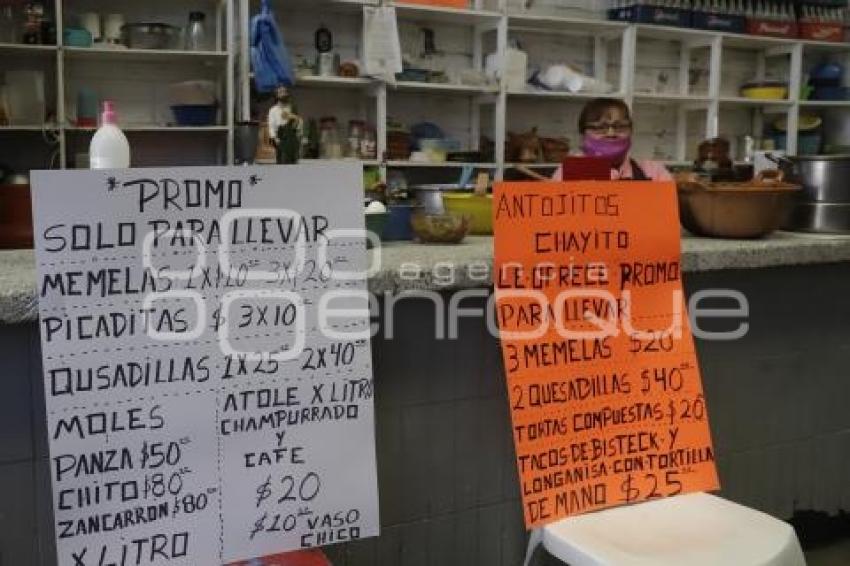 *PROMO*
SOLO PARA LLEVAR
MEMELAS 1X$10.00 3X$20.00
PICADITAS $ 3X10
QUSADILLAS 1X25.00 2X40.00
MOLES
PANZA $50.00
CHITO $80.00
ZANCARRON $80.00
X LITRO
ATOLE X LITRO
CHAMPURRADO
Y
CAFE
$20
$10.00 VASO
CHICO
ANTOJITOS
CHAYITO
LE OFRECE PROMO
PARA LLEVAR
3 MEMELAS $20
2 QUESADILLAS $40.00
TORTAS COMPUESTAS $20
TACOS DE BISTECK Y
LONGANISA CON TORTILLA
DE MANO $25.00
agencia
enfoque